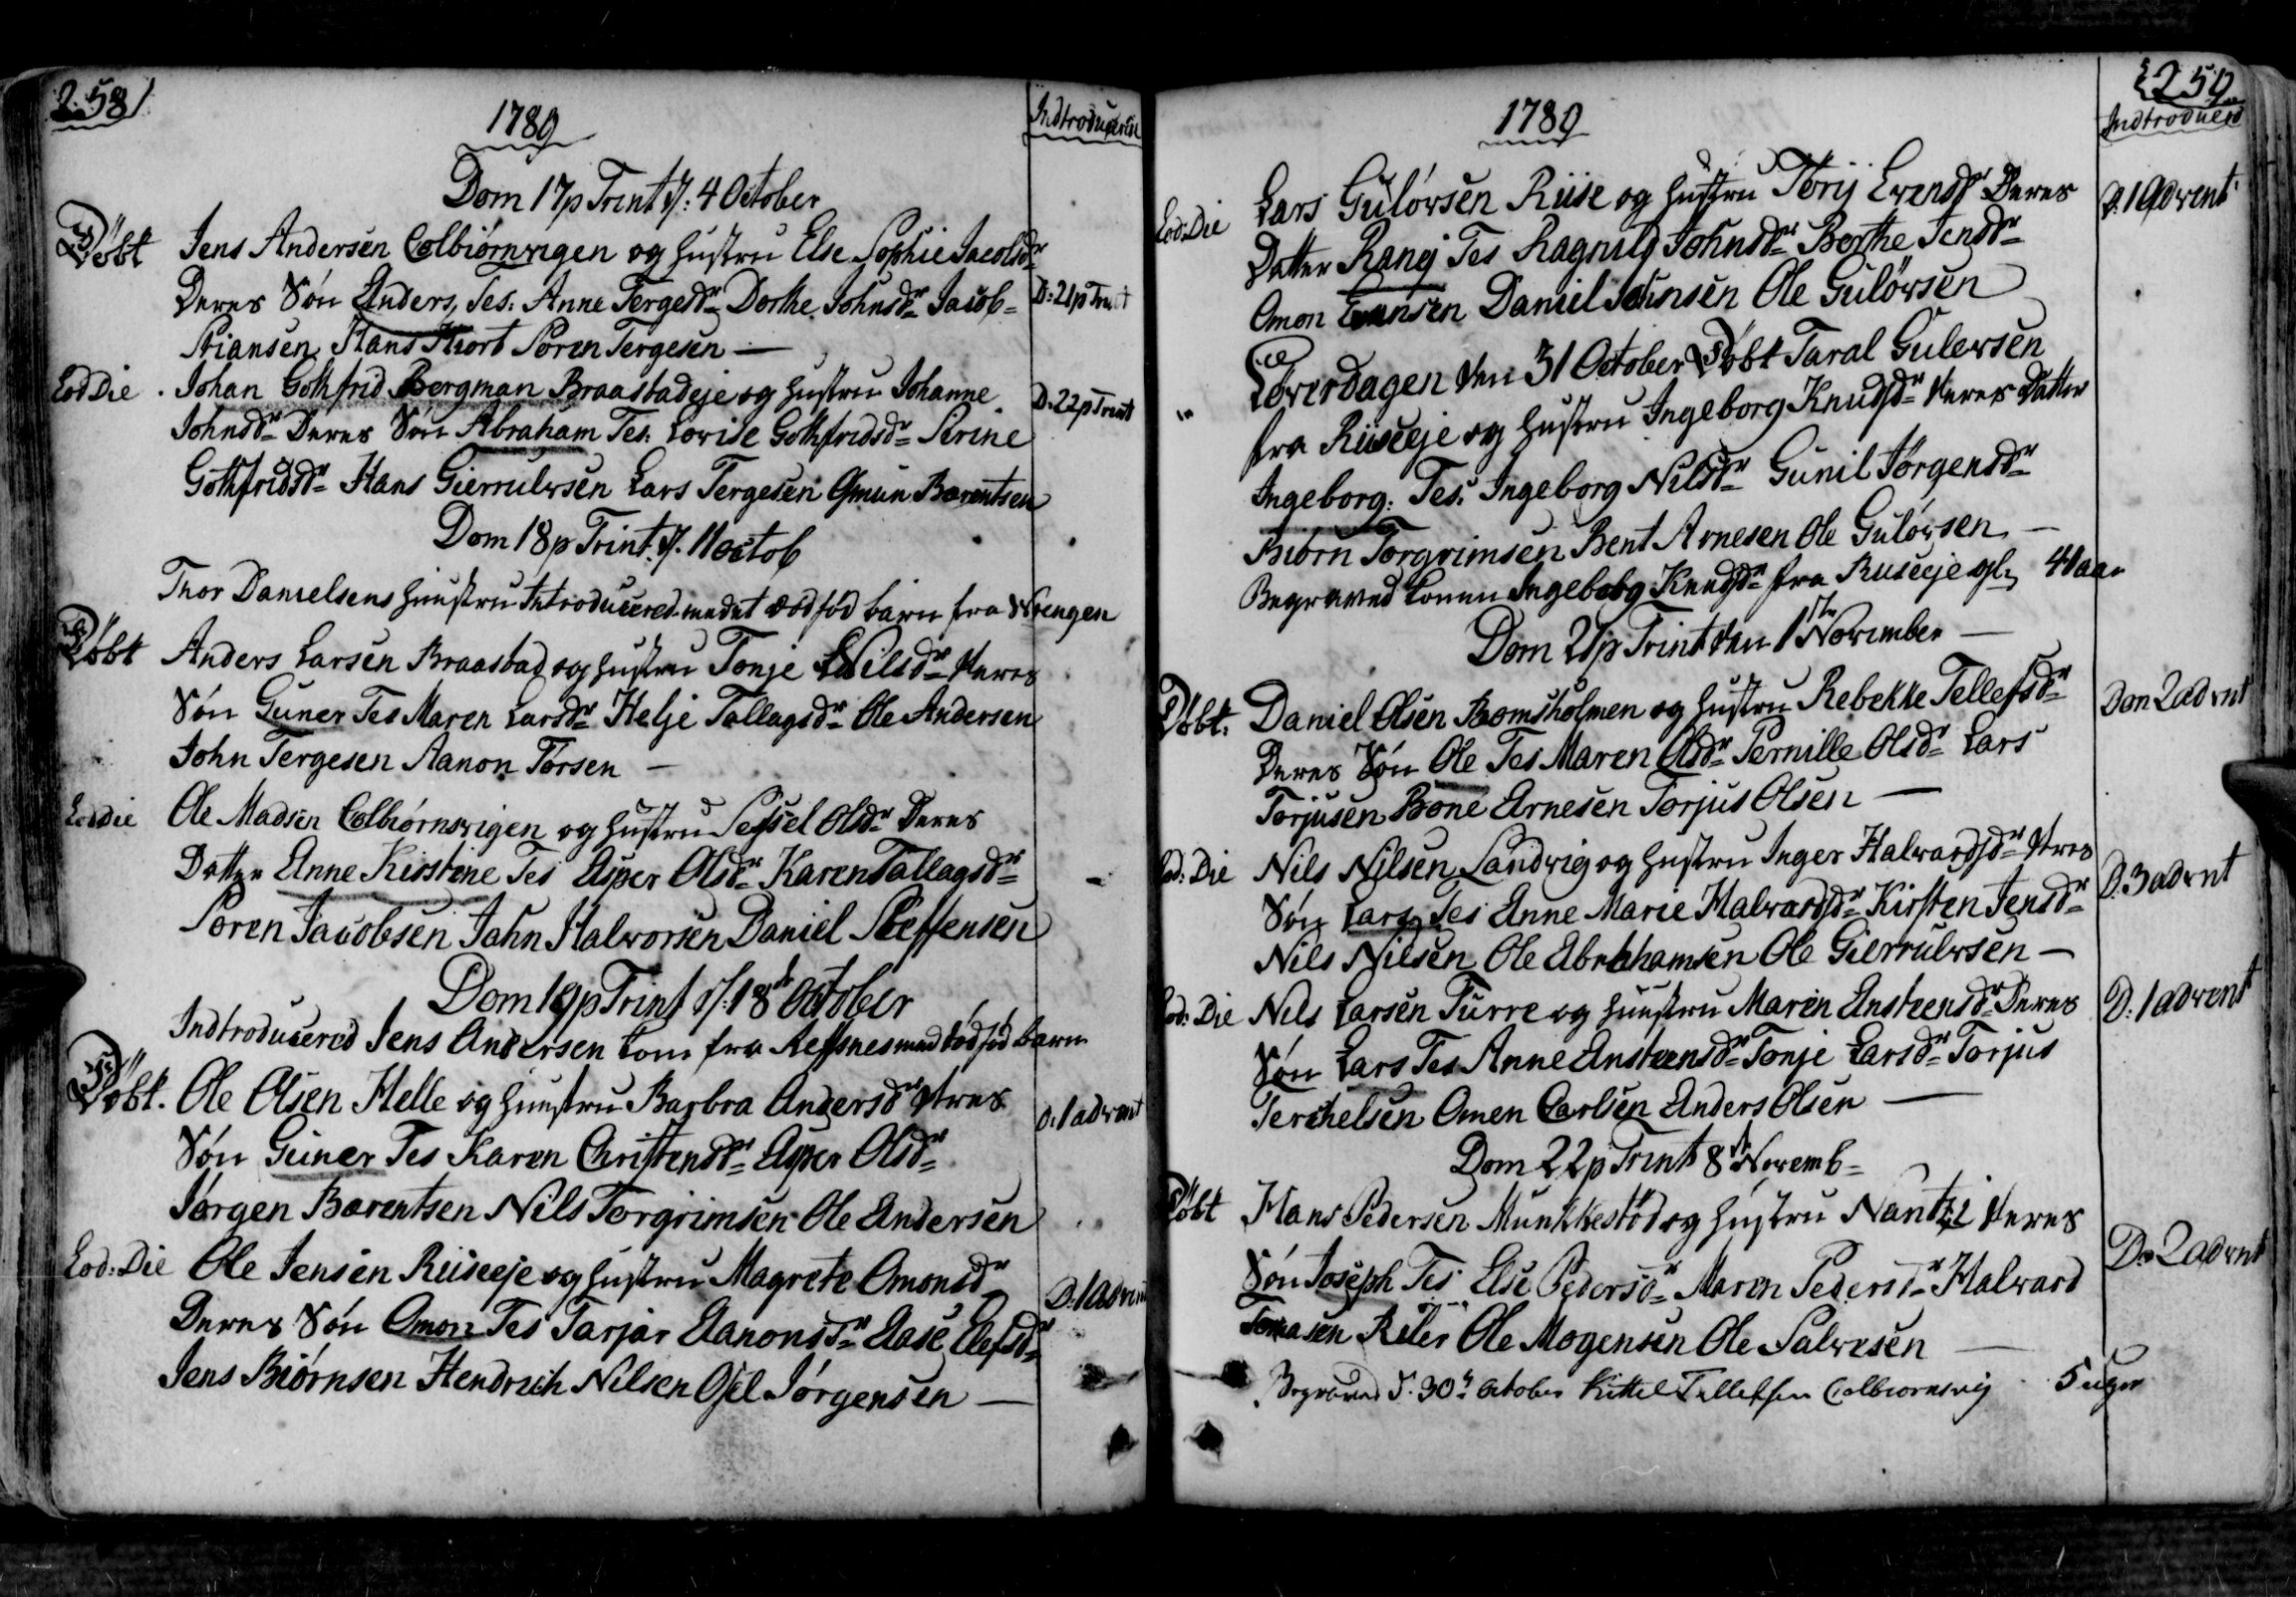 258
1789
Indtroducerede
Dom 17 p Trint d: 4 October
Døbt Jens Andersen Colbiørnsvigen og Hustru Else Sophie Jacobsdr
Deres Søn Anders, Tes: Anne Tergesdr Dorthe Johnsdr Jacob= D: 21 p Trint
Stiansen Hans Hiort Søren Tergesen —
Eod Die Johan Gothfrid Bergman Braastadeje og Hustru Johanne D. 22 p Trint
Johnsdr Deres Søn Abraham Tes. Lovise Gothfridsdr Serine
Gothfridsdr Hans Gierrulvsen Lars Tergesen Omun Barentsen
Dom 18 p Trint. d. 11 octob
Thor Danielsens Huustru Introducered med et dødfød barn fra Wrengen
Døbt Anders Larsen Braastad og Hustru Tonje Nilsdr Deres
Søn Guner Tes Maren Larsdr Helje Tallagsdr Ole Andersen
John Tergesen Aanon Torsen —
Eod die Ole Madsen Colbiørnsvigen og Hustru Sessel Olsdr Deres
Datter Anne Kirstine Tes Asper Olsdr Karen Tallagsdr
Søren Jacobsen John Halvorsen Daniel Steffensen
Dom 19 p Trint d. 18 October
Indtroducered Jens Andersen Kone fra Refsnes med dødfød barn
Døbt. Ole Olsen Helle og Huustru Barbra Andersdr Deres D. 1 advent
Søn Guner Tes Karen Christensdr Asper Olsdr
Jørgen Barentsen Nils Torgrimsen Ole Andersen
Eod: Die Ole Jensen Riiseeje og Hustru Magrete Omonsdr D. 1 advent
Deres Søn Omon Tes Tarjar Aanonsdr Aase Elefsdr
Jens Biørnsen Hendrich Nilsen Osel Jørgensen —
259
1789
Indtroducered
Eod: Die Lars Guløvsen Riise og Hustru Torij Evensdr Deres D. 1 Advent
Datter Rangj Tes Ragnild Johnsdr Berthe Jensdr
Omon Evensen Daniel Johnsen Ole Guløvsen
Løverdagen den 31 October Døbt Taral Gulevsen
fra Riiseeje og Hustru Ingeborg Knudsdr deres Datter
Ingeborg. Tes. Ingeborg Nilsdr Gunil Jørgensdr
Biørn Torgrimsen Bent Arnesen Ole Guløvsen —
Begraved Konen Ingeborg Knudsdr fra Riiseeje gl. 41 aar
Dom 21 p Trint den 1ste November —
Døbt. Daniel Olsen Bomsholmen og Hustru Rebekke Tellefsdr Dom 2 advnt
Deres Søn Ole Tes Maren Olsdr Pernille Olsdr Lars
Torjusen Bone Arnesen Torjus Olsen —
Eod: Die Nils Nilsen Sandvig og Hustru Inger Halvardsdr Deres D. 3 advnt
Søn Lars Tes Anne Marie Halvardsdr Kirsten Jensdr
Nils Nilsen Ole Abrahamsen Ole Gierrulvsen —
Eod: Die Nels Larsen Furre og Huustru Maren Ensteensdr Deres D. 1 advent
Søn Lars Tes Anne Ensteensdr Tonje Larsdr Torjus
Terchelsen Omen Carlsen Anders Olsen —
Dom 22 p Trint 8 Novemb=
Døbt Hans Pedersen Munkkestød og Hustru Nantzi Deres
Søn Joseph Tes Else Pedersdr Maren Pedersdr Halvard Do 2 advnt
Tomasen Riler Ole Mogensen Ole Salvesen —
Begraved d. 30 October Kittel Tellefsen Colbiornsvig 5 uger